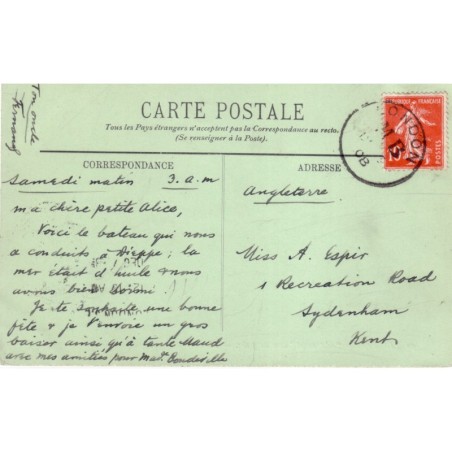 Ton oncle
Fernand
CARTE POSTALE
Tous les Pays étrangers n'acceptent pas la Correspondance au recto.
(Se renseigner à la Poste).
CORRESPONDANCE
Samedi matin 3.a.m
ma chère petite Alice,
Voici le bateau qui nous
a conduits à Dieppe; la
mer était d'huile & nous
avons bien dormi.
Je te souhaite une bonne
fête & je t'envoie un gros
baiser ainsi qu'à tante Maud
avec mes amitiés pour Mad.
ADRESSE
Angleterre
Miss A. Espir
1 Recreation Road
Sydenham
Kent
REPUBLIQUE FRANÇAISE
POSTES
LONDON
08